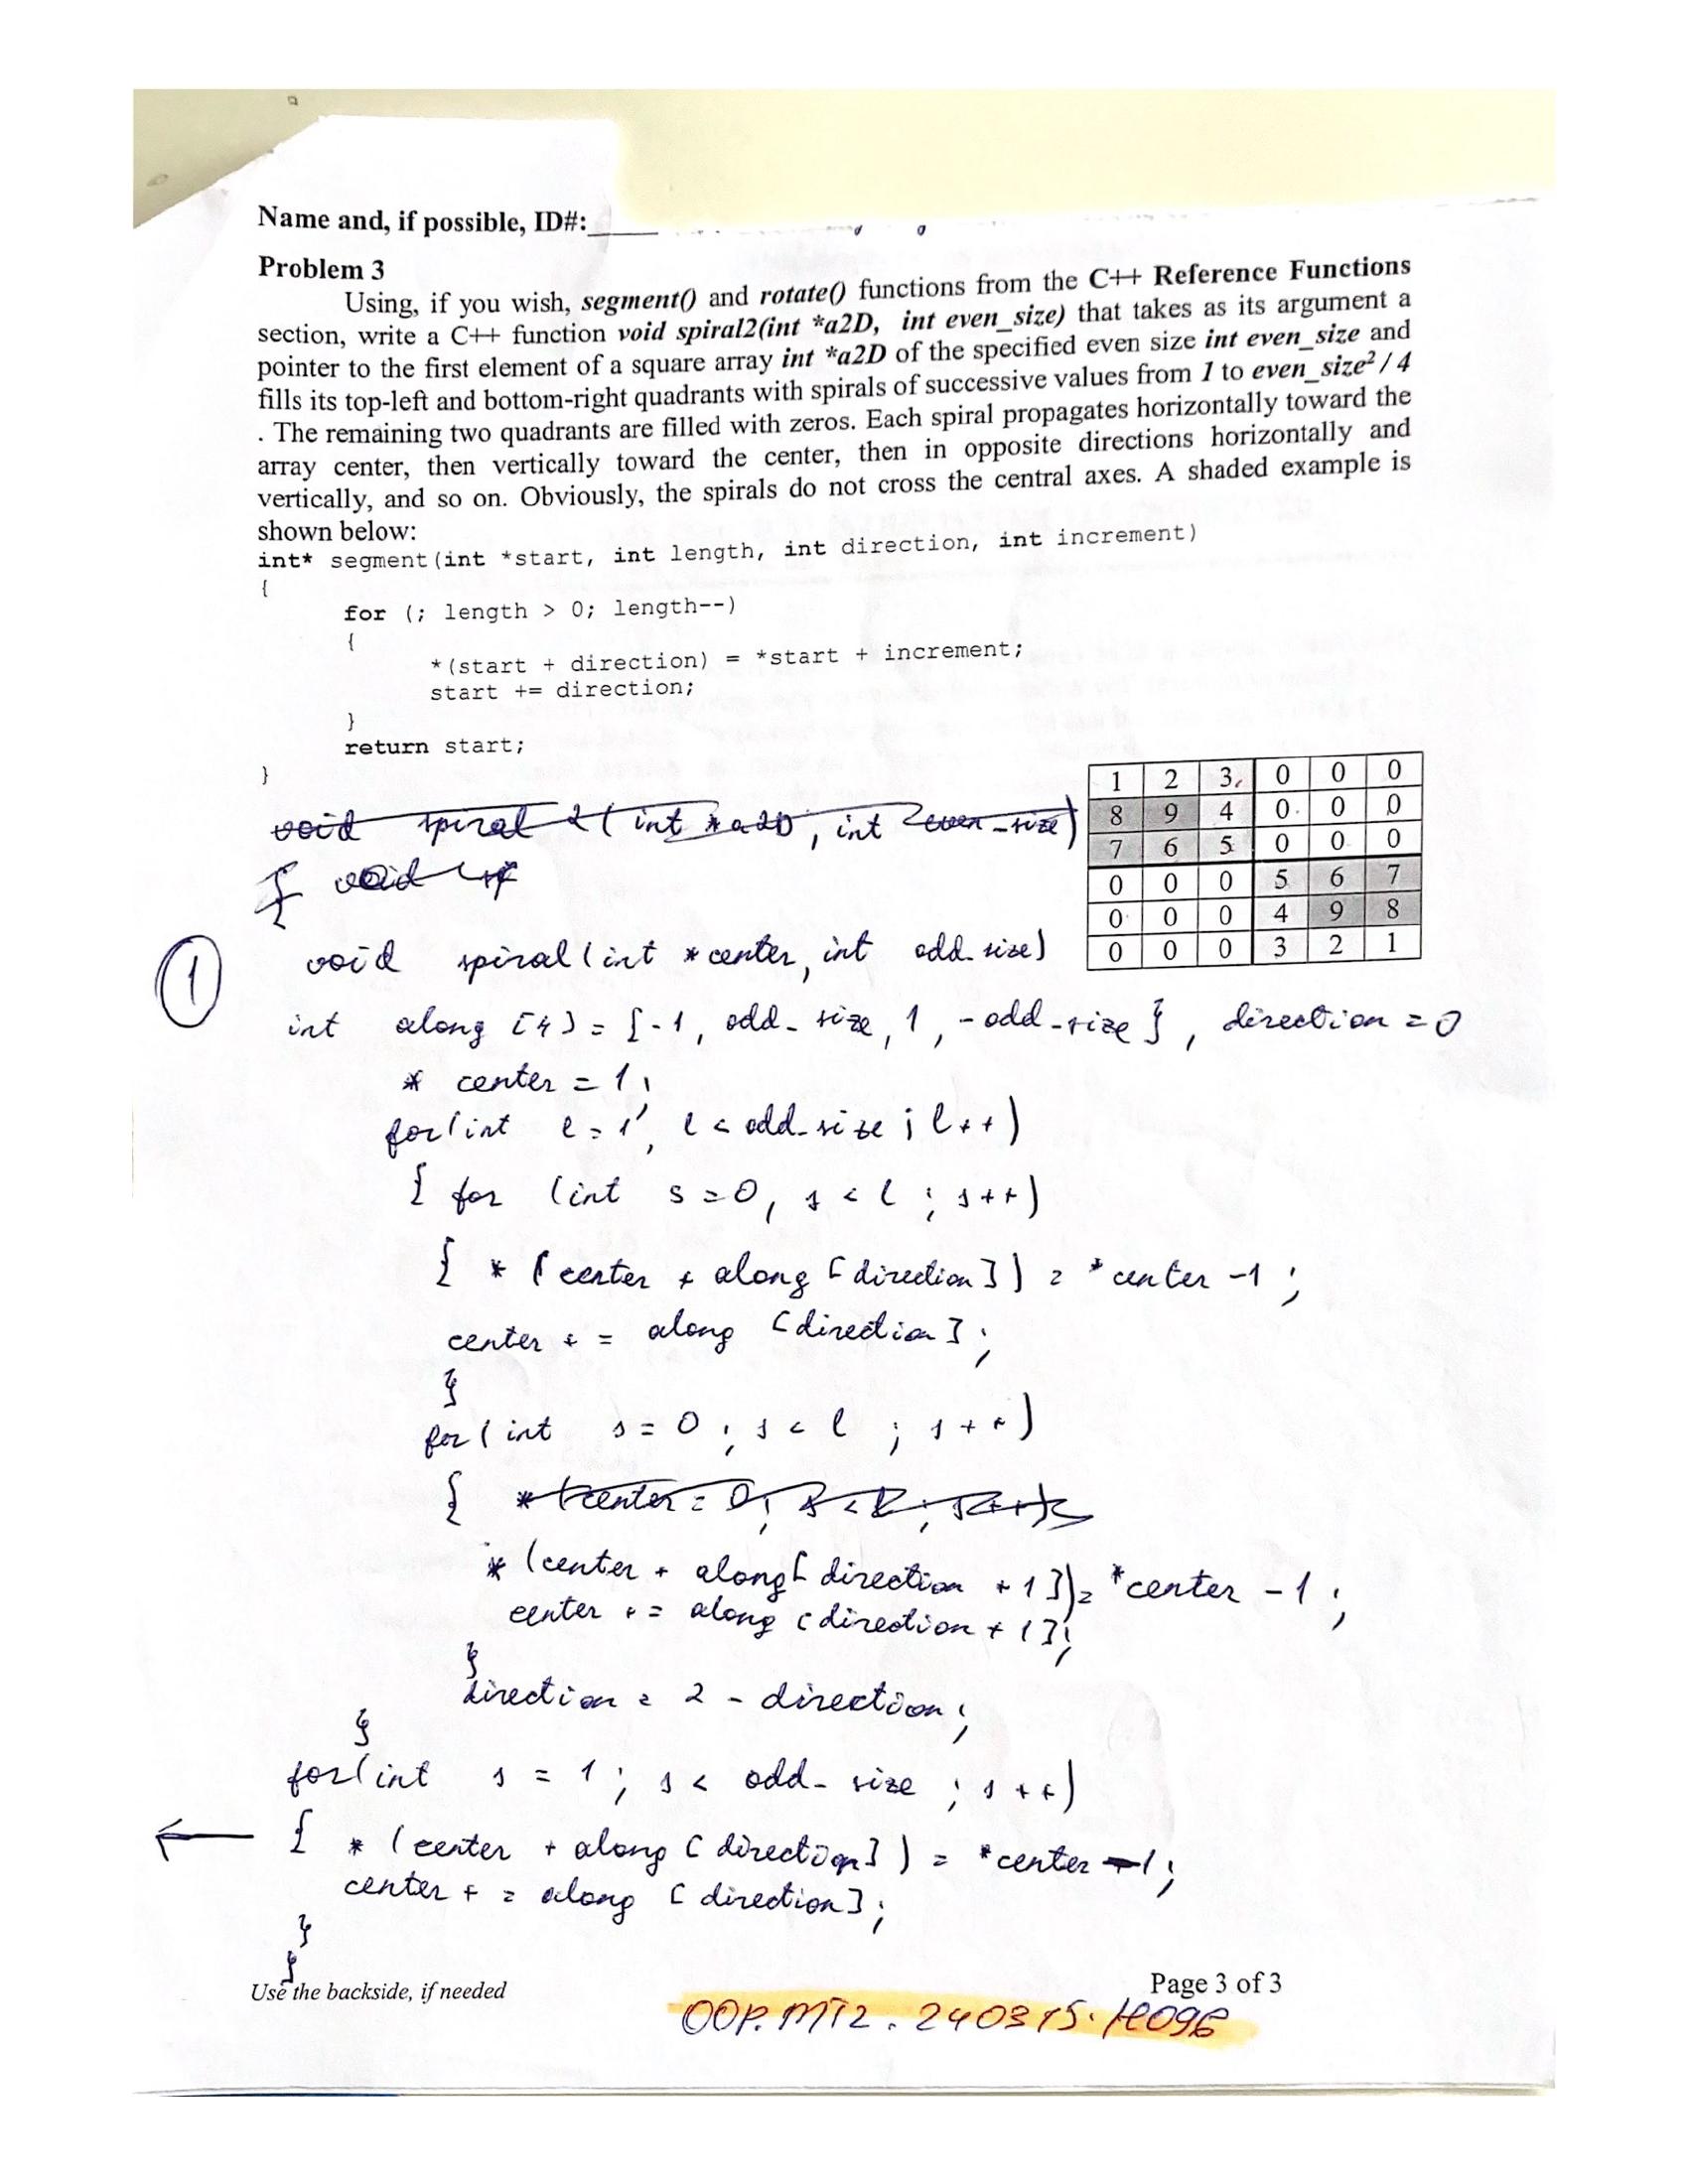 Name and, if possible, ID#:_____
Problem 3
Using, if you wish, segment() and rotate() functions from the C++ Reference Functions
section, write a C++ function void spiral2(int *a2D, int even_size) that takes as its argument a
pointer to the first element of a square array int *a2D of the specified even size int even_size and
fills its top-left and bottom-right quadrants with spirals of successive values from 1 to even_size² / 4
. The remaining two quadrants are filled with zeros. Each spiral propagates horizontally toward the
array center, then vertically toward the center, then in opposite directions horizontally and
vertically, and so on. Obviously, the spirals do not cross the central axes. A shaded example is
shown below:
int* segment(int *start, int length, int direction, int increment)
{
for (; length > 0; length--)
{
*(start + direction) = *start + increment;
start += direction;
}
return start;
}
1 2 3 0 0 0
8 9 4 0 0 0
7 6 5 0 0 0
0 0 0 5 6 7
0 0 0 4 9 8
0 0 0 3 2 1
void spiral 2 (int *a2D, int even_size)
{ void
1
void spiral (int *center, int odd_size)
int along [4] = {-1, odd_size, 1, -odd_size}, direction = 0
* center = 1;
for(int l = 1; l < odd_size; l++)
{ for (int s = 0, s < l ; s++)
{ * (center + along [direction]) = *center -1 ;
center += along [direction];
}
for (int s = 0 ; s < l ; s++)
{ *(center = 0; s < l ; s++)
* (center + along[direction + 1]) = *center - 1 ;
center += along [direction + 1];
}
direction = 2 - direction;
}
for(int s = 1 ; s < odd_size ; s++)
{ * (center + along [direction]) = *center -1;
center += along [direction];
}
}
Use the backside, if needed
Page 3 of 3
OOP.MT2.240315.H096